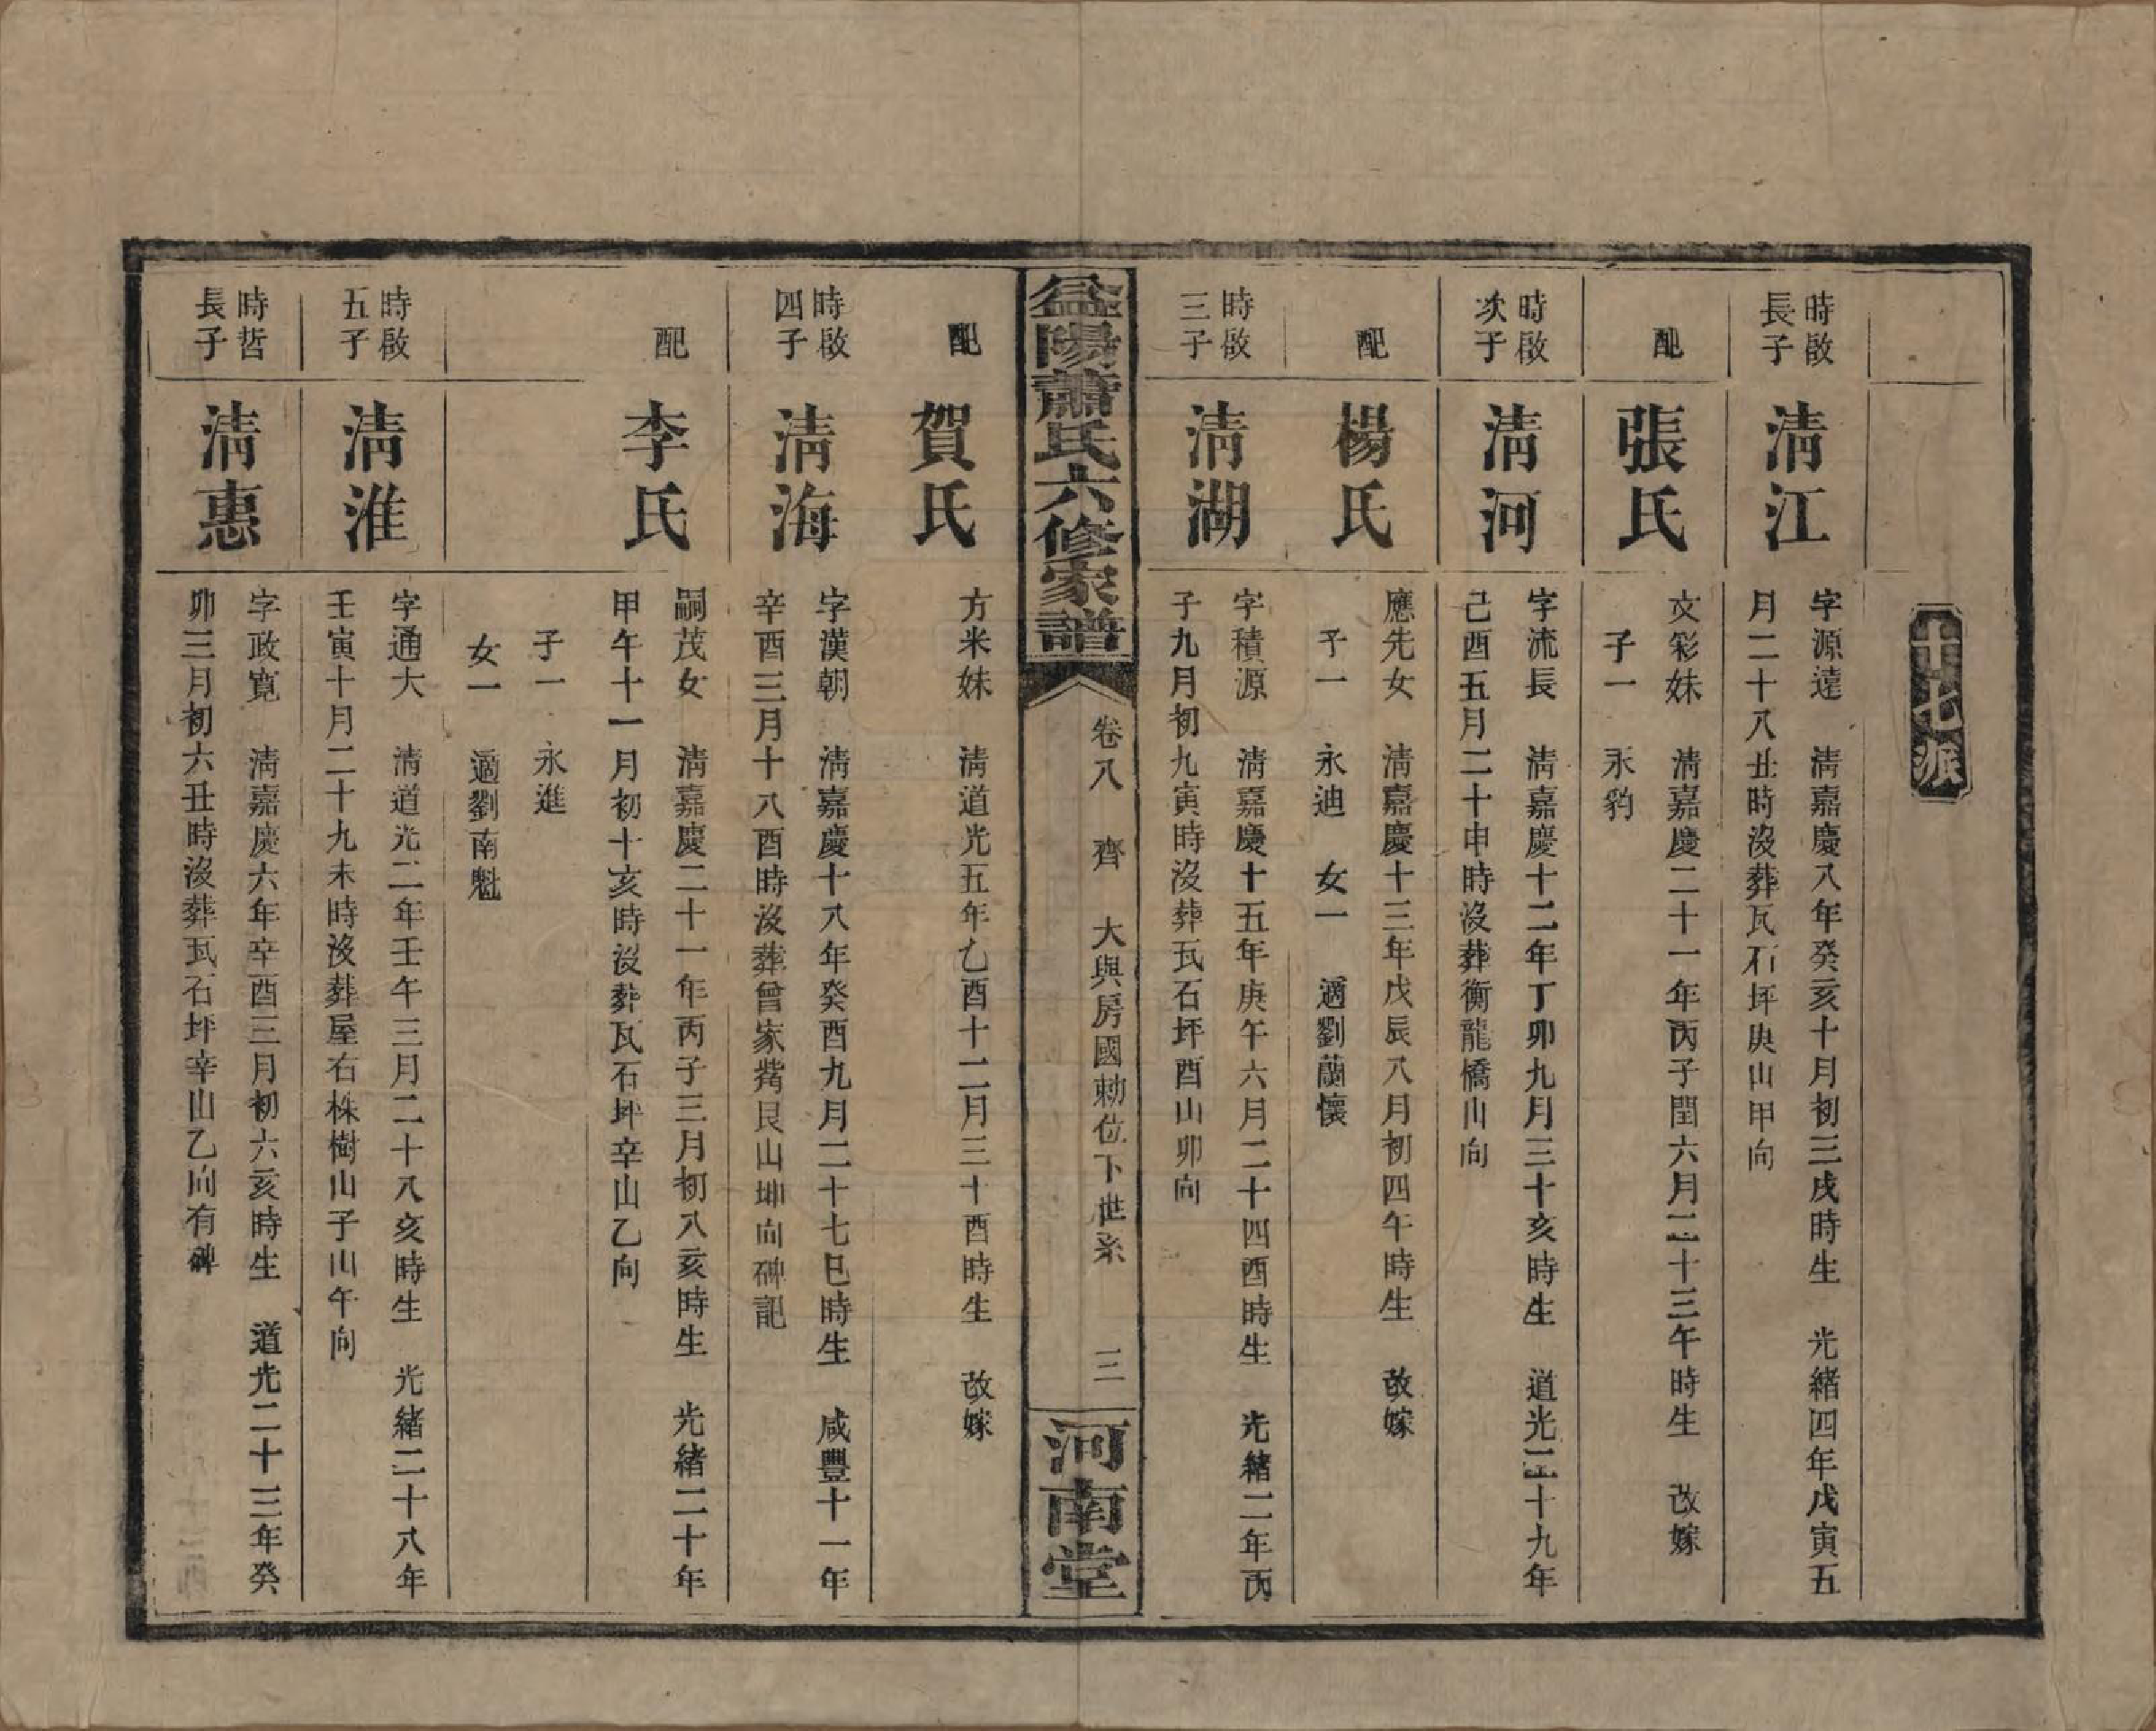 十七派
時啟
長子
清江
字源達　清嘉慶八年癸亥十月初三戌時生　光緒四年戊寅五
月二十八丑時沒葬瓦石坪庚山甲向
配
張氏
文彩妹　清嘉慶二十一年丙子閏六月二十三午時生　改嫁
子一　永豹
時啟
次子
清河
字流長　清嘉慶十二年丁卯九月三十亥時生　道光二十九年
己酉五月二十申時沒葬衡龍橋山向
配
楊氏
應先女　清嘉慶十三年戊辰八月初四午時生　改嫁
子一　永迪　女一　適劉蘭懷
時啟
三子
清湖
字積源　清嘉慶十五年庚午六月二十四酉時生　光緒二年丙
子九月初九寅時沒葬瓦石坪酉山卯向
益陽蕭氏六修家譜
卷八　齊　大與房國勅位下世系　三
河南堂
配
賀氏
方米妹　清道光五年乙酉十二月三十酉時生　改嫁
時啟
四子
清海
字漢朝　清嘉慶十八年癸酉九月二十七巳時生　咸豐十一年
辛酉三月十八酉時沒葬曾家嘴艮山坤向碑記
配
李氏
嗣茂女　清嘉慶二十一年丙子三月初八亥時生　光緒二十年
甲午十一月初十亥時沒葬瓦石坪辛山乙向
子一　永進
女一　適劉南魁
時啟
五子
清淮
字通大　清道光二年壬午三月二十八亥時生　光緒二十八年
壬寅十月二十九未時沒葬屋右株樹山子山午向
時哲
長子
清惠
字政寬　清嘉慶六年辛酉三月初六亥時生　道光二十三年癸
卯三月初六丑時沒葬瓦石坪辛山乙向有碑